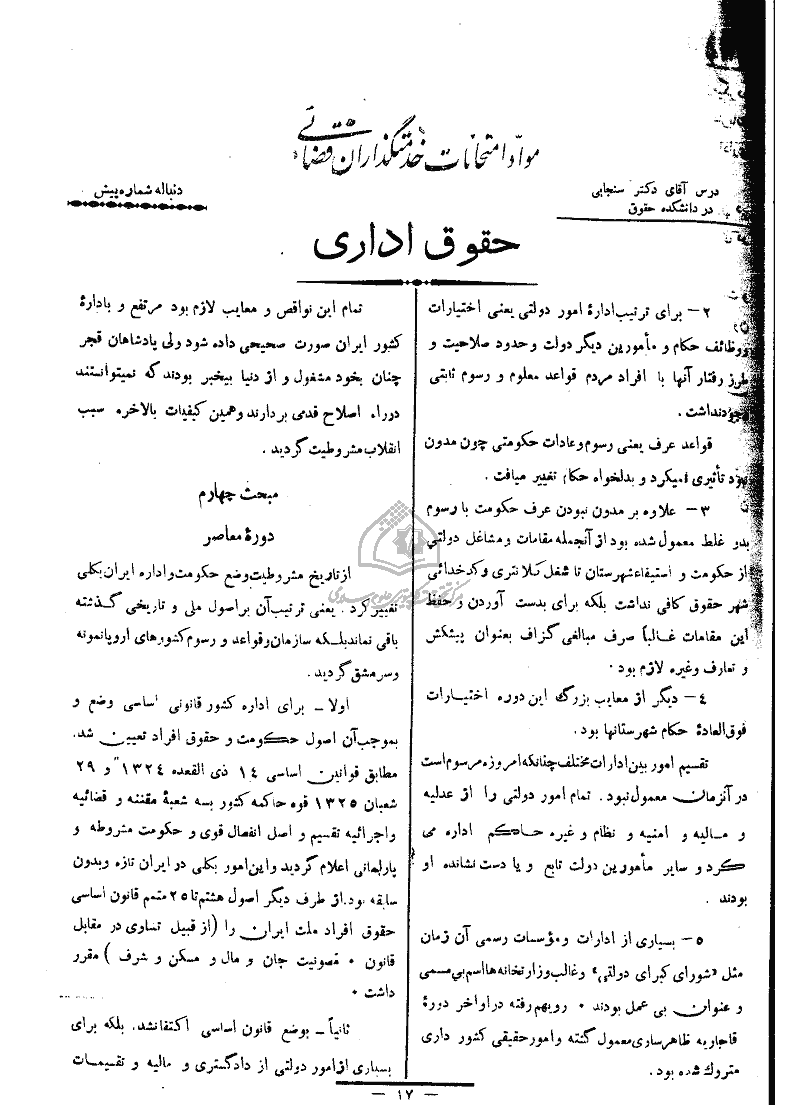 مواد امتحانات خدمتگذاران قضائی
درس آقای دکتر سنجابی
در دانشکده حقوق
دنباله شماره پیش
حقوق اداری
۲- برای ترتیب ادارهٔ امور دولتی یعنی اختیارات
ووظائف حکام و مأمورین دیگر دولت وحدود صلاحیت و
طرز رفتار آنها با افراد مردم قواعد معلوم و رسوم ثابتی
وجود نداشت .
قواعد عرف یعنی رسوم وعادات حکومتی چون مدون
نبود تأثیری نمیکرد و بدلخواه حکام تغییر میافت .
۳- علاوه بر مدون نبودن عرف حکومت با رسوم
بدو غلط معمول شده بود از آنجمله مقامات و مشاغل دولتی
از حکومت و استیفاء شهرستان تا شغل کلانتری و کدخدائی
شهر حقوق کافی نداشت بلکه برای بدست آوردن و حفظ
این مقامات غالباً صرف مبالغی گزاف بعنوان پیشکش
و تعارف وغیره لازم بود .
٤- دیگر از معایب بزرگ این دوره اختیارات
فوق‌العادهٔ حکام شهرستانها بود .
تقسیم امور بین ادارات مختلف چنانکه امروزه مرسوم است
در آنزمان معمول نبود . تمام امور دولتی را از عدلیه
و مالیه و امنیه و نظام و غیره حاکم اداره می
کرد و سایر مأمورین دولت تابع و یا دست نشانده او
بودند .
٥- بسیاری از ادارات ومؤسسات رسمی آن زمان
مثل «شورای کبرای دولتی» و غالب وزارتخانه‌ها اسم بی مسمی
و عنوان بی عمل بودند . رویهم رفته در اواخر دورهٔ
قاجاریه ظاهر سازی معمول گشته و امور حقیقی کشور داری
متروك شده بود .
تمام این نواقص و معایب لازم بود مرتفع و بادارهٔ
کشور ایران صورت صحیحی داده شود ولی پادشاهان قجر
چنان بخود مشغول و از دنیا بیخبر بودند که نمیتوانستند
درراه اصلاح قدمی بردارند وهمین کیفیات بالاخره سبب
انقلاب مشروطیت گردید .
مبحث چهارم
دورهٔ معاصر
از تاریخ مشروطیت وضع حکومت و اداره ایران بکلی
تغییر کرد . یعنی ترتیب آن بر اصول ملی و تاریخی گذشته
باقی نماند بلکه سازمان وقواعد و رسوم کشورهای اروپا نمونه
وسر مشق گردید .
اولا ـ برای اداره کشور قانونی اساسی وضع و
بموجب آن اصول حکومت و حقوق افراد تعیین شد.
مطابق قوانین اساسی ۱٤ ذی القعده ۱۳۲٤ و ۲۹
شعبان ۱۳۲٥ قوه حاکمه کشور بسه شعبهٔ مقننه و قضائیه
واجرائیه تقسیم و اصل انفصال قوی و حکومت مشروطه و
پارلمانی اعلام گردید و این امور بکلی در ایران تازه وبدون
سابقه بود. از طرف دیگر اصول هشتم تا ۲٥ متمم قانون اساسی
حقوق افراد ملت ایران را (از قبیل تساوی در مقابل
قانون . مصونیت جان و مال و مسکن و شرف ) مقرر
داشت .
ثانیاً ـ بوضع قانون اساسی اکتفا نشد. بلکه برای
بسیاری از امور دولتی از دادگستری و مالیه و تقسیمات
— ۱۷ —